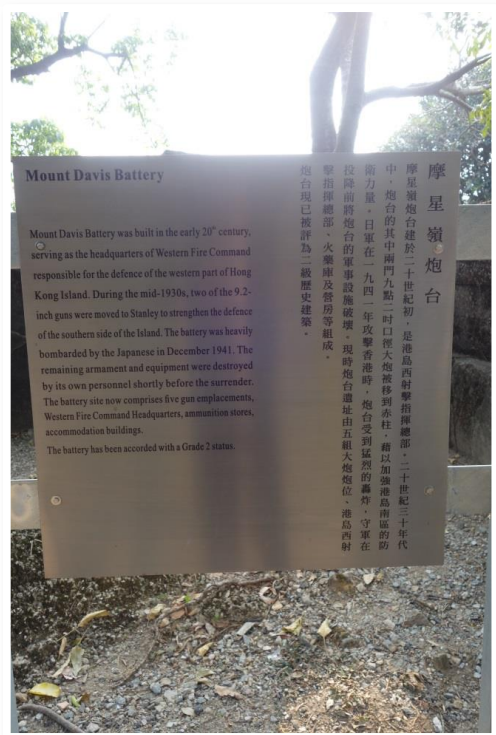 Mount Davis Battery
Mount Davis Battery was built in the early 20th century,
serving as the headquarters of Western Fire Command
responsible for the defence of the western part of Hong
Kong Island. During the mid-1930s, two of the 9.2-
inch guns were moved to Stanley to strengthen the defence
of the southern side of the Island. The battery was heavily
bombarded by the Japanese in December 1941. The
remaining armament and equipment were destroyed
by its own personnel shortly before the surrender.
The battery site now comprises five gun emplacements,
Western Fire Command Headquarters, ammunition stores,
accommodation buildings.
The battery has been accorded with a Grade 2 status.
摩星嶺炮台
摩星嶺炮台建於二十世紀初，是港島西射擊指揮總部。二十世紀三十年代
中，炮台的其中兩門九點二吋口徑大炮被移到赤柱，藉以加強港島南區的防
衛力量。日軍在一九四一年攻擊香港時，炮台受到猛烈的轟炸，守軍在
投降前將炮台的軍事設施破壞。現時炮台遺址由五組大炮炮位、港島西射
擊指揮總部、火藥庫及營房等組成。
炮台現已被評為二級歷史建築。